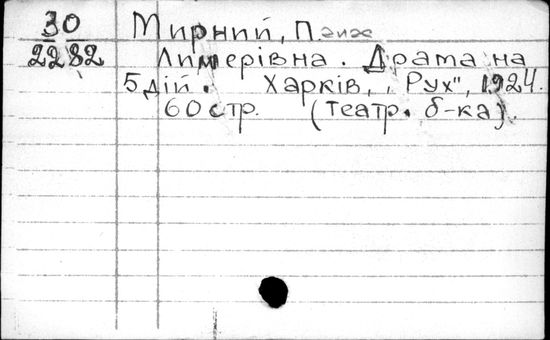 30 Мирний, Панас
2282 Лимерівна. Драма на
5 дій. Харків, „Рух", 1924.
60 стр. (театр. б-ка).